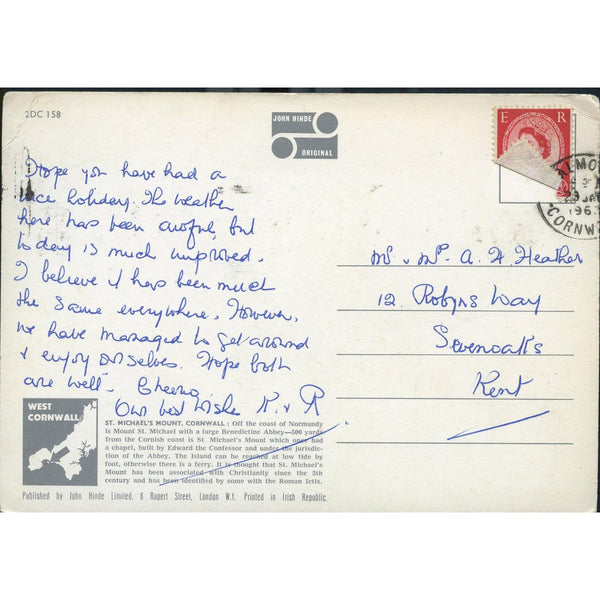 2DC 158
JOHN HINDE
ORIGINAL
E R
ALMO
196
CORNW
Hope you have had a
nice holiday. The weather
here has been awful, but
to day is much improved.
I believe it has been much
the same everywhere. However,
we have managed to get around
& enjoy ourselves. Hope both
are well. Cheerio,
Our best wishes R. & R
Mr. & Mrs A. H Heather
12. Robyns Way
Sevenoaks
Kent
WEST
CORNWALL
ST. MICHAEL'S MOUNT, CORNWALL : Off the coast of Normandy
is Mount St. Michael with a large Benedictine Abbey—500 yards
from the Cornish coast is St. Michael's Mount which once had
a chapel, built by Edward the Confessor and under the jurisdic-
tion of the Abbey. The Island can be reached at low tide by
foot, otherwise there is a ferry. It is thought that St. Michael's
Mount has been associated with Christianity since the 5th
century and has been identified by some with the Roman Ictis.
Published by John Hinde Limited, 6 Rupert Street, London W.1. Printed in Irish Republic.